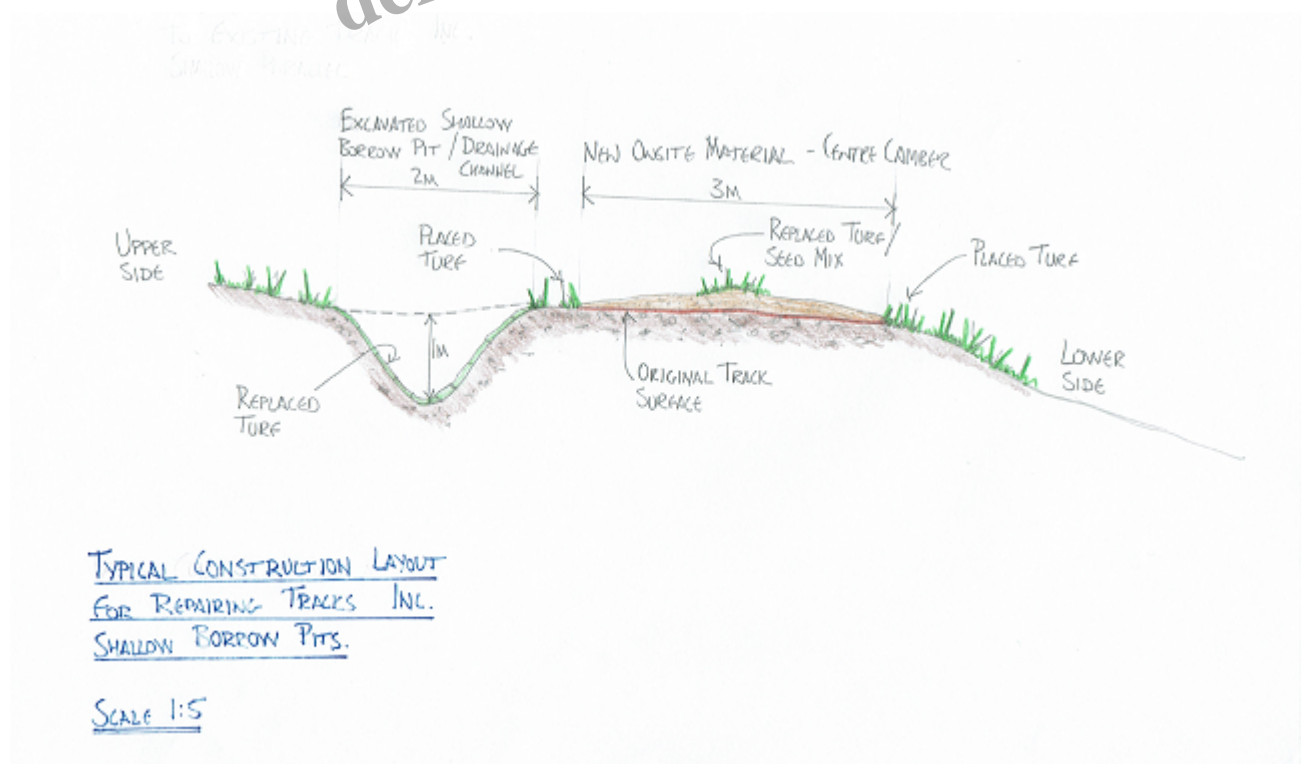 TO EXISTING TRACK INC.
SHALLOW PARALLEL
EXCAVATED SHALLOW
BORROW PIT / DRAINAGE
CHANNEL
2M
NEW ONSITE MATERIAL - CENTRE CAMBER
3M
UPPER
SIDE
PLACED
TURF
REPLACED TURF/
SEED MIX
PLACED TURF
1M
REPLACED
TURF
ORIGINAL TRACK
SURFACE
LOWER
SIDE
TYPICAL CONSTRUCTION LAYOUT
FOR REPAIRING TRACKS INC.
SHALLOW BORROW PITS.
SCALE 1:5